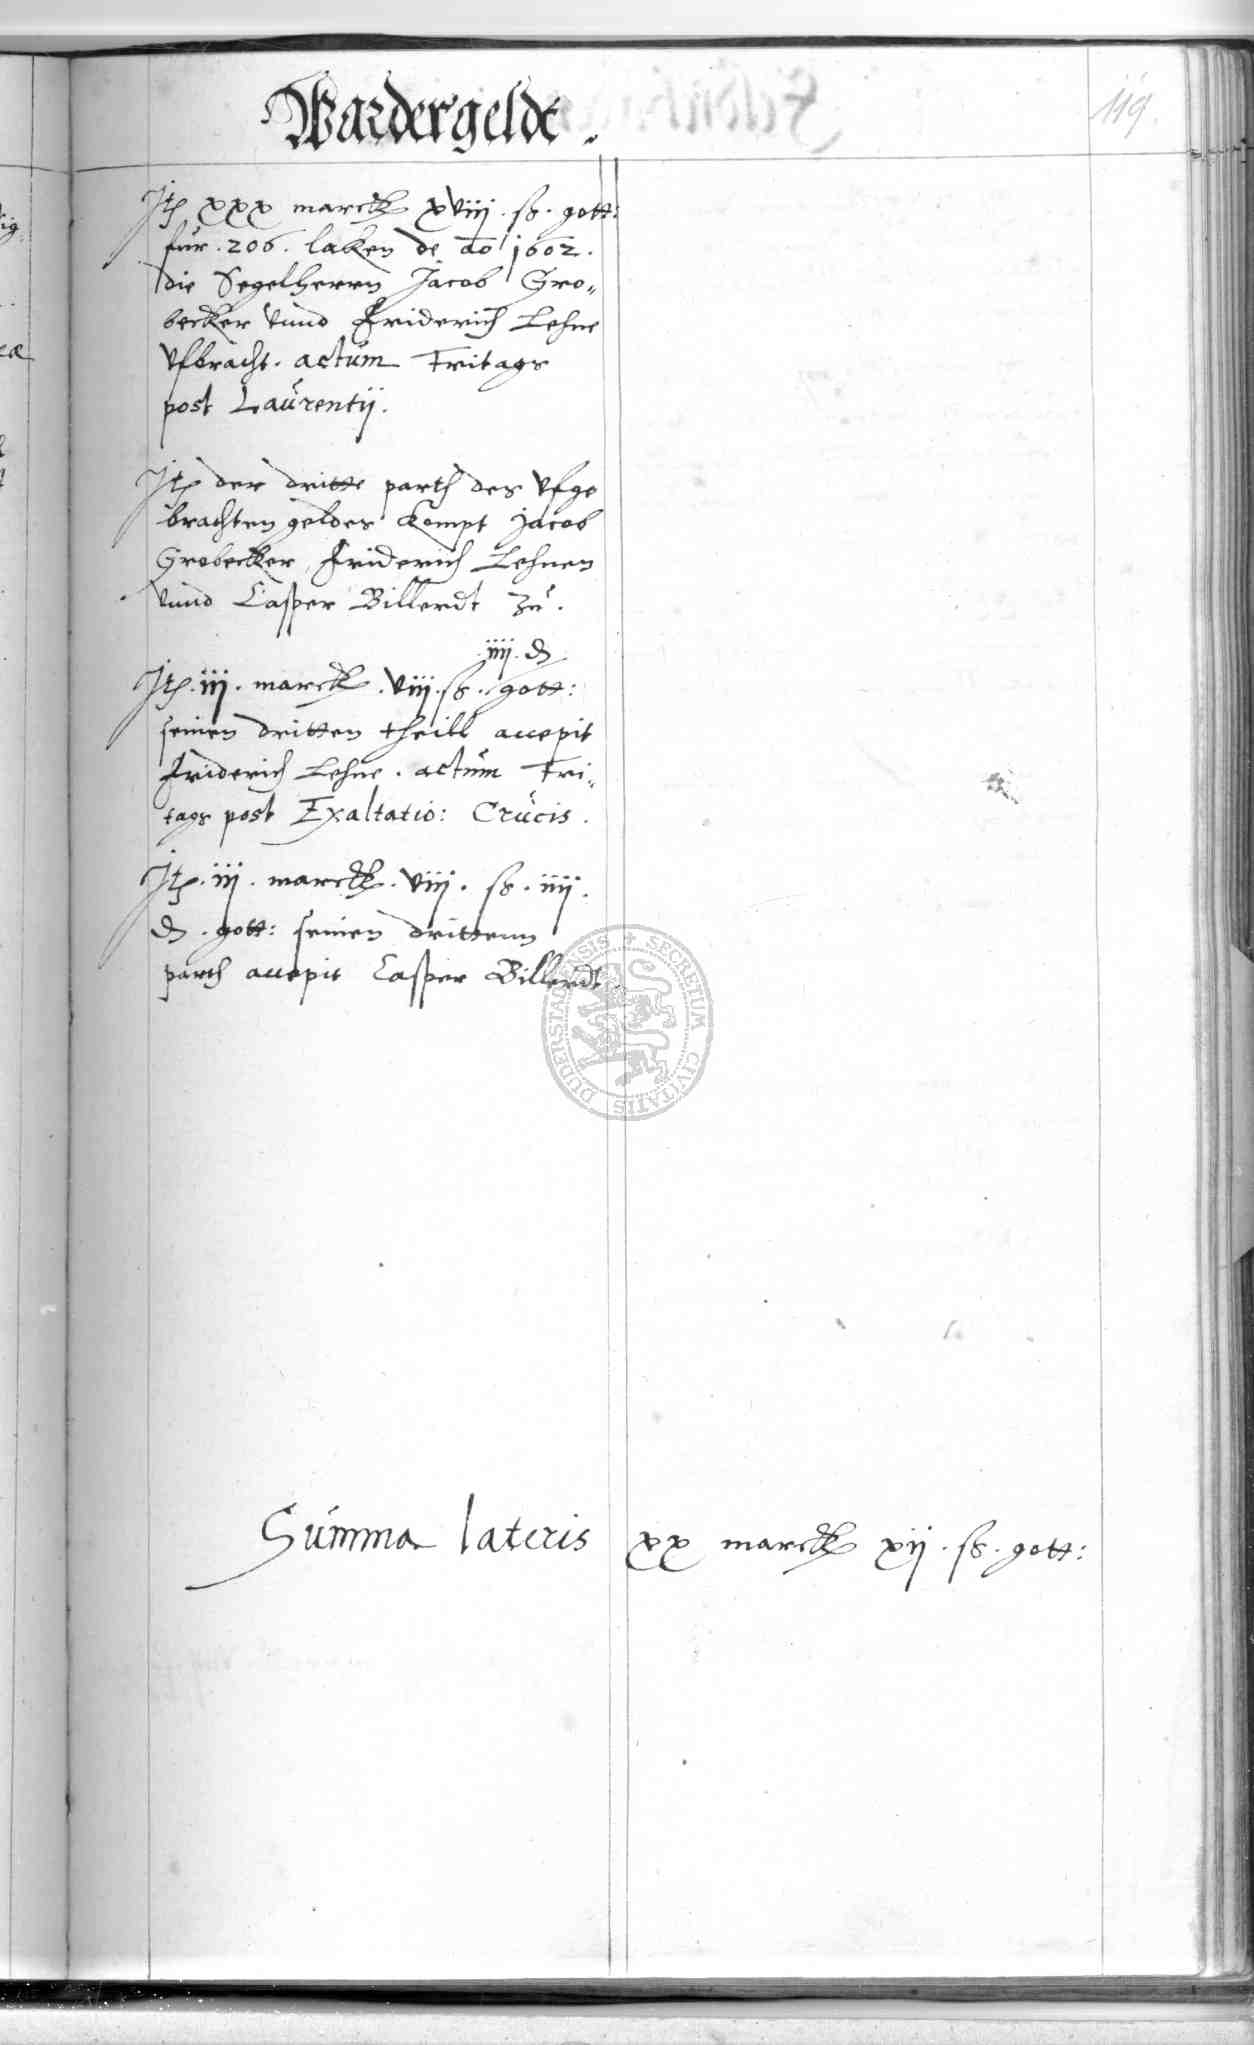 Wardergeldt.
119.
Jtem xxx marck xviij. ß. gott:
für. 206. laken de ao 1602.
die Segelherrn Jacob Gro„
becker vnnd Friderich Lehne
vfbracht. actum Fritags
post Laurentij.
Jtem der dritte parth des vfge
brachten geldes kompt Jacob
Grobecker, Friderich Lehnen
vnnd Casper Billerdt zu.
.iiij. d
Jtem. iij. marck. viij. ß. gott:
seinen dritten theill accepit
Friderich Lehne. actum Fri„
tags post Exaltatio: Crucis.
Jtem. iij. marck. viij. ß. iiij.
d. gott: seinen drittenn
parth accepit Casper Billerdt.
SECRETUM CIVITATIS DUDERSTADENSIS
Summa lateris xx marck xij. ß. gott: